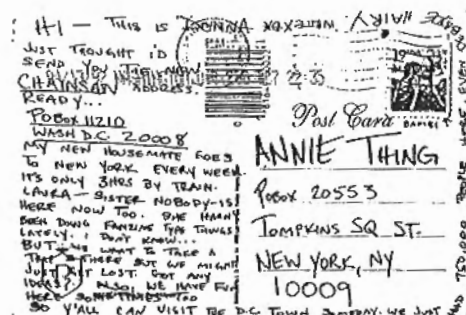 HI — THIS IS
JUST THOUGHT I'D
SEND YOU THE NEW
CHAINSAW ADDRESS.
READY...
PO BOX 11210
WASH D.C. 20008
MY NEW HOUSEMATE GOES
TO NEW YORK EVERY WEEK.
IT'S ONLY 3HRS BY TRAIN.
LAURA — SISTER NOBODY — IS
HERE NOW TOO. SHE HASN'T
BEEN DOING FANZINE TYPE THINGS
LATELY. I DON'T KNOW...
BUT WE WANT TO TAKE A
TRIP THERE BUT WE MIGHT
JUST GET LOST. GOT ANY
IDEAS? ALSO, WE HAVE FUN
HERE SOMETIMES TOO
SO Y'ALL CAN VISIT THE D.C. TOWN SOMEDAY. WE JUST
HAD
PEOPLE HERE EVEN
22:35
19
Post Card
ANNIE THING
PO BOX 20553
TOMPKINS SQ ST.
NEW YORK, NY
10009